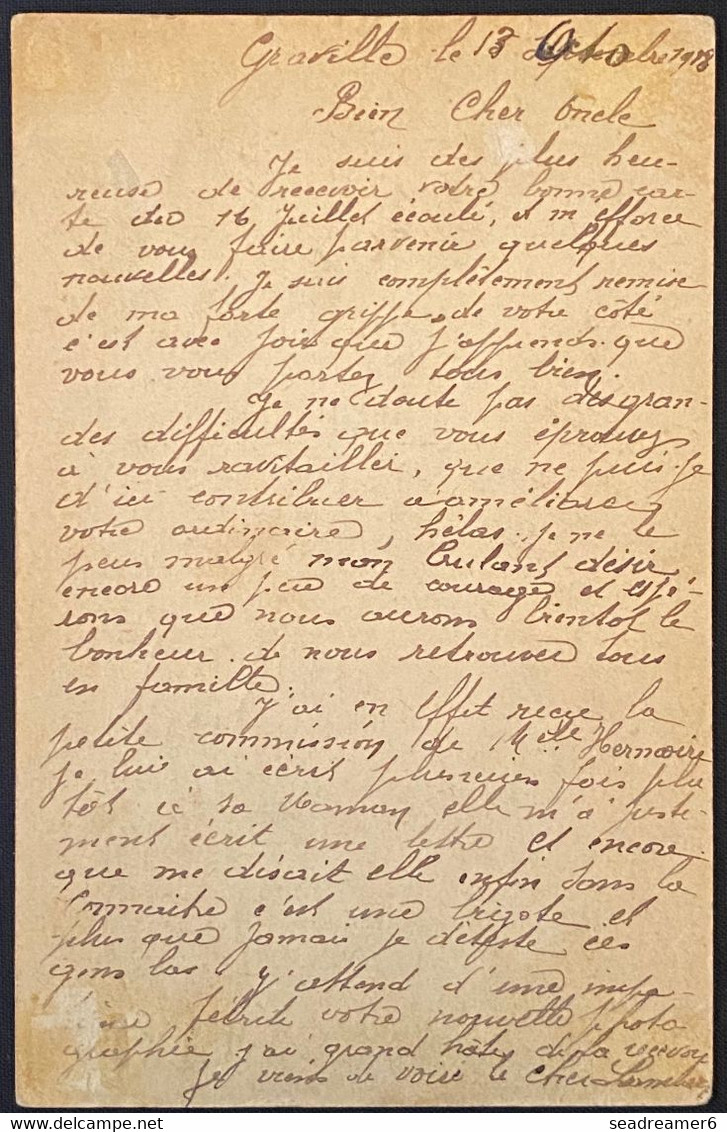 Graville le 13 Octobre 1918
Bien Cher Oncle
Je suis des plus heu-
reuse de recevoir votre bonne car-
te du 16 Juillet écoulé, et m'efforce
de vous faire parvenir quelques
nouvelles. Je suis complètement remise
de ma forte grippe, de votre côté
c'est avec joie que j'apprends que
vous vous portez tous bien.
Je ne doute pas des gran-
des difficultés que vous éprouvez
à vous ravitailler, que ne puis-je
d'ici contribuer à améliorer
votre ordinaire, hélas, je ne le
peus malgré mon brulant désir
encore un peu de courage et espé-
rons que nous aurons bientot le
bonheur de nous retrouver tous
en famille.
J'ai en effet reçu la
petite commission de Melle
je lui ai écris plusieurs fois plu
tôt à sa Maman, elle m'a juste-
ment écrit une lettre et encore
que me disait elle enfin sans la
connaitre c'est une bigote et
plus que jamais je déteste ces
gens las. J'attend d'une impa-
votre nouvelle photo
graphie, j'ai grand hâte de la recevoir
Je viens de voire le cher
seadreamer6